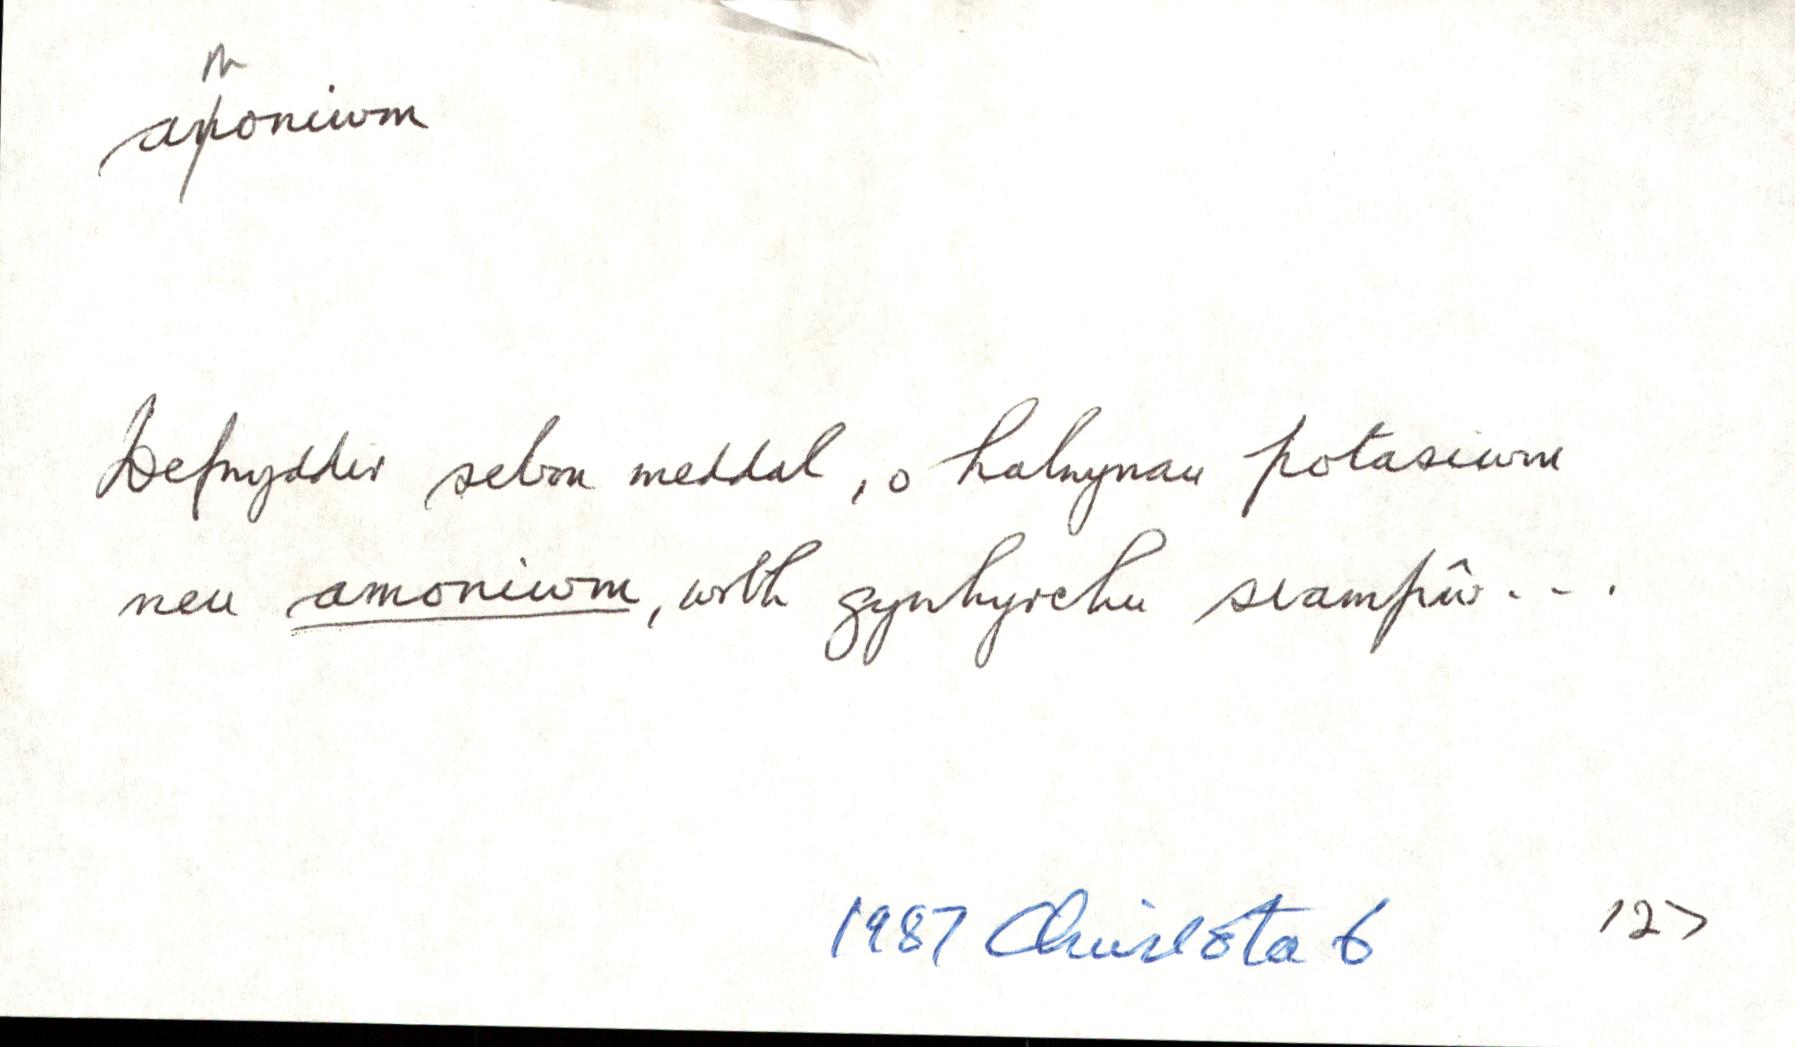 m
aponiwm
Defnyddir sebon meddal, o halwynau potasiwm
neu amoniwm, wrth gynhyrchu siampŵ...
1987 Chwilota 6 127